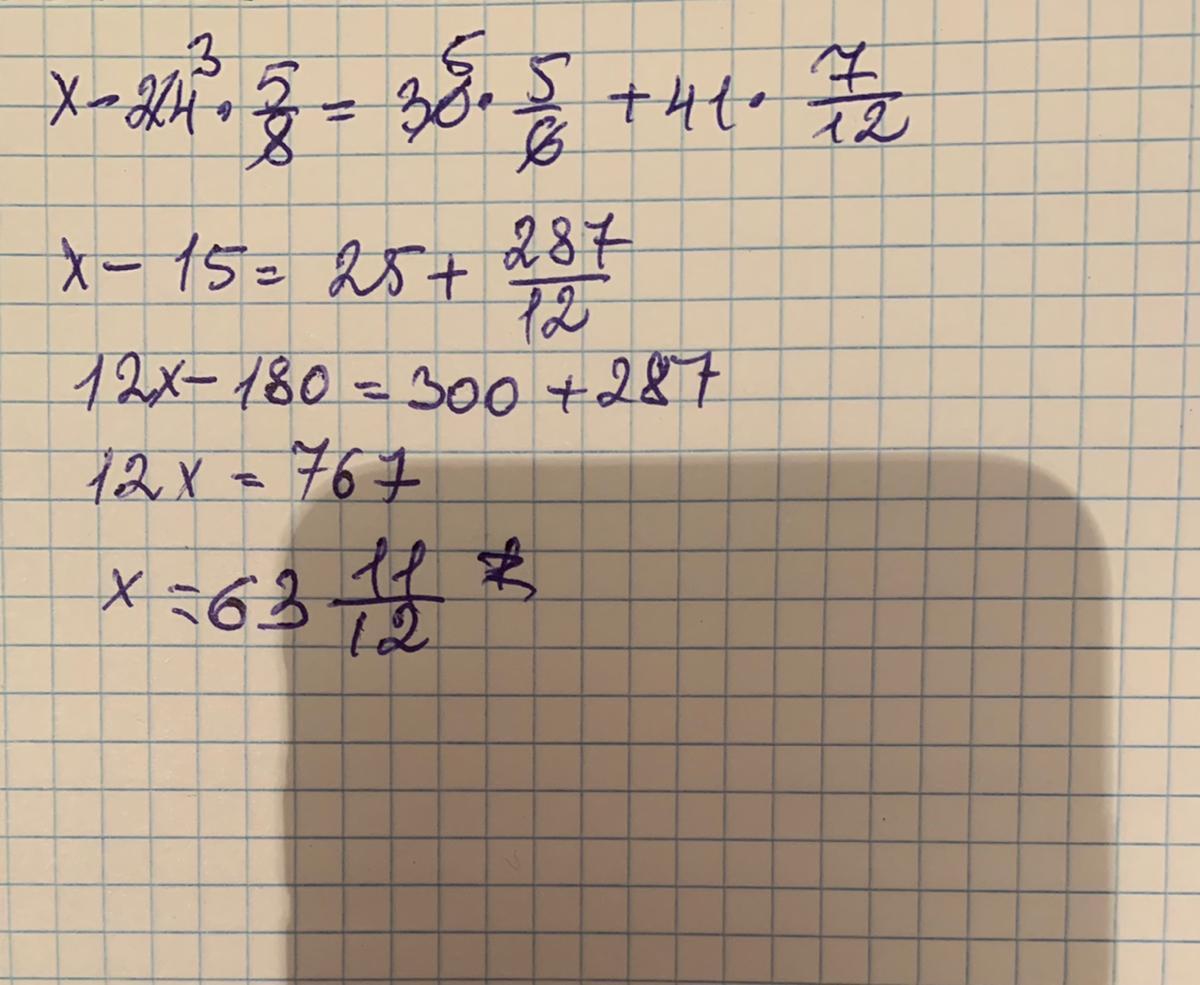 x - 24³ · 5/8 = 30⁵ · 5/6 + 41 · 7/12
x - 15 = 25 + 287/12
12x - 180 = 300 + 287
12x = 767
x = 63 11/12